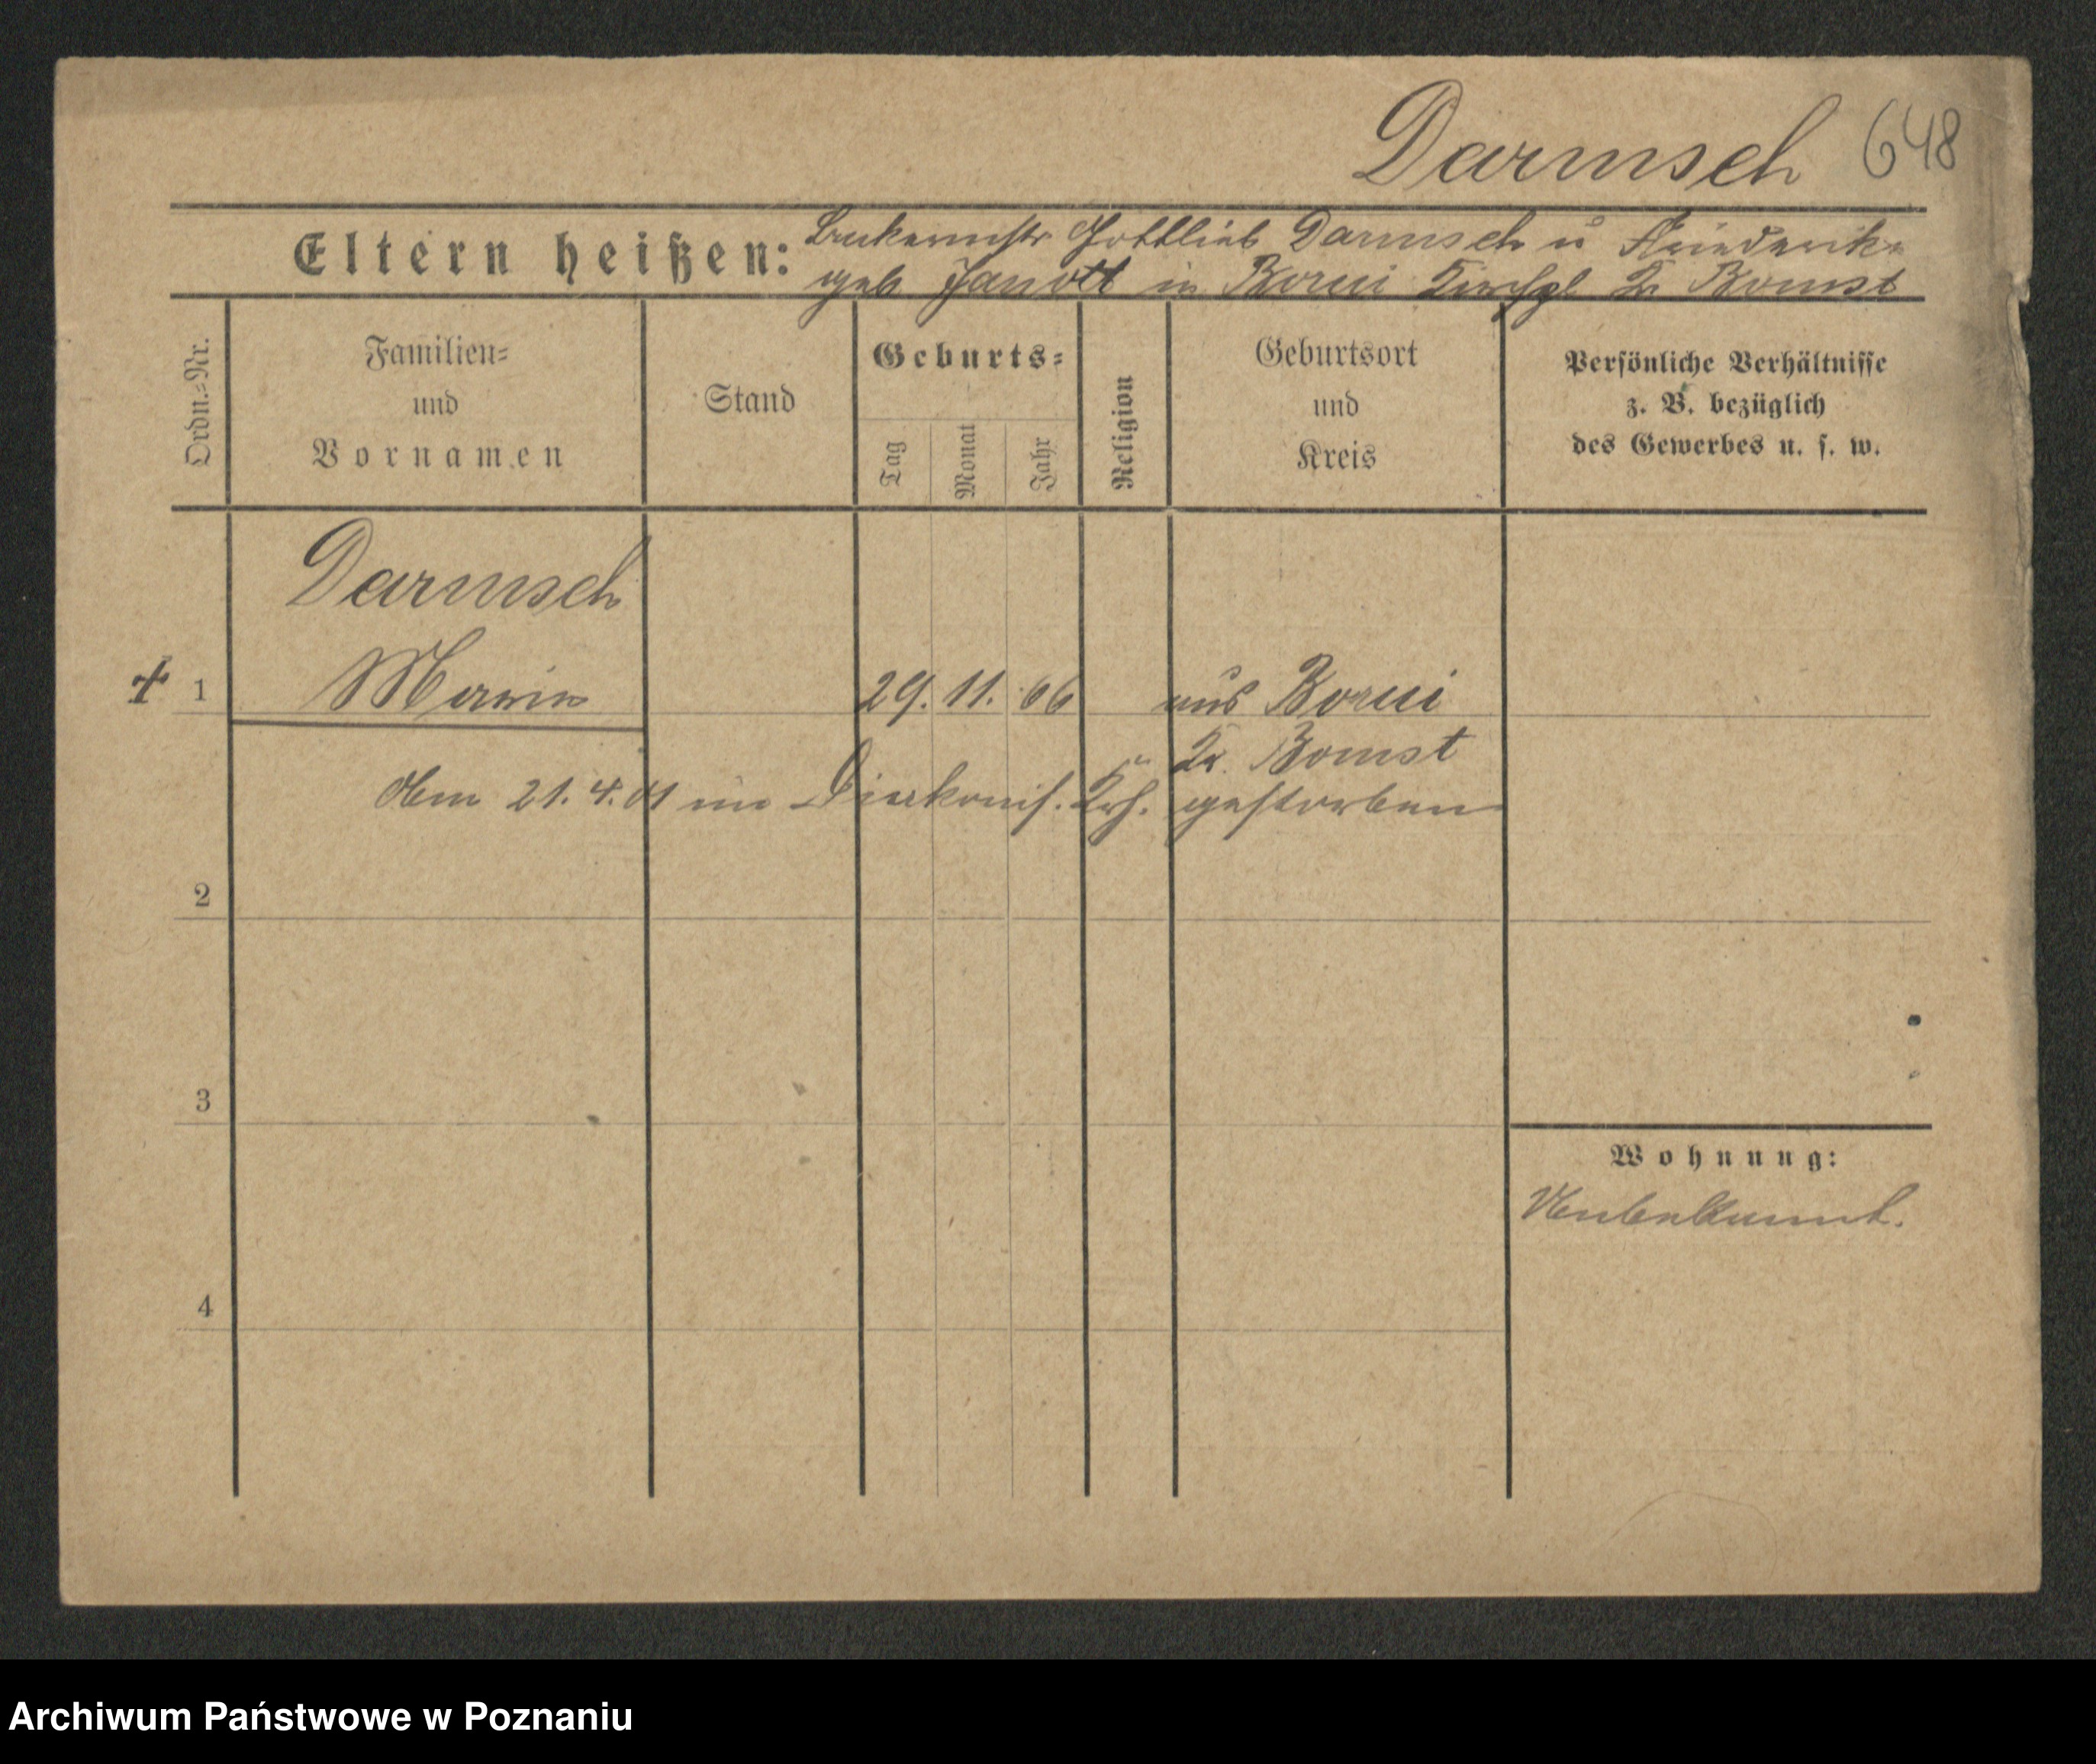 Darmsch 648
Eltern heißen: Bäckermstr Gottlieb Darmsch u Friederike
geb Janott in Borui Kirchpl Kr Bomst
Ordn.-Nr.
Familien-
und
Vornamen
Stand
Geburts-
Tag
Monat
Jahr
Religion
Geburtsort
und
Kreis
Persönliche Verhältnisse
z. B. bezüglich
des Gewerbes u. s. w.
Darmsch
+ 1 29. 11. 66 aus Borui
Kr. Bomst
Am 21. 4. 01 im Diakoniss. Krh. gestorben
2
3
4
Wohnung:
Unbekannt.
Archiwum Państwowe w Poznaniu